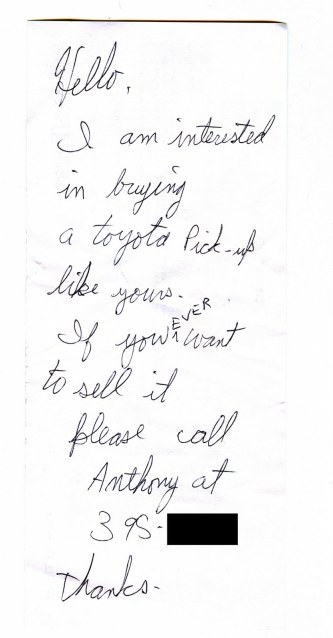 Hello,
I am interested
in buying
a toyota Pick-up
like yours.
If you EVER want
to sell it
please call
Anthony at
395-
Thanks-